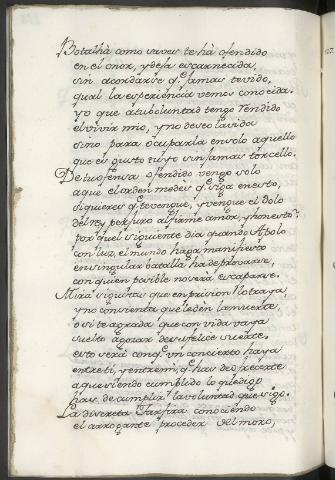 Botalhà como saves te hà ofendido
en el onor, y dejà escarnecida,
sin acordarse q.e jamas te vido,
qual la esperiencia vemos conocida.
yo que a tu boluntad tengo rendido
el vivir mio, y no deseo la vida
sino para ocuparla en solo aquello
que es gusto tuyo sin jamas torcello.
De tu ofensa ofendido vengo solo
a que el orden me des q.e siga en esto,
si quieres q.e te vengue, y vengue el dolo
del rey perjuro al firme amor, y honesto
por que el siguiente dia quando Apolo
con luz, el mundo haga manifiesto
en singular batalla ha de provarse,
con quien posible no serà escaparse.
Mira si gustas que en prision No haya,
y no consienta que le dèn la muerte,
o si te agrada que con vida vaya
suelto agozar de su felice suerte.
esto serà con q.e un concierto haya
entre ti, y entre mi, q.e has de ofrecerte
aque siendo cumplido lo que digo
has de cumplir la voluntad que sigo.
La discreta Tarfira conociendo
el arrogante proceder del moro,